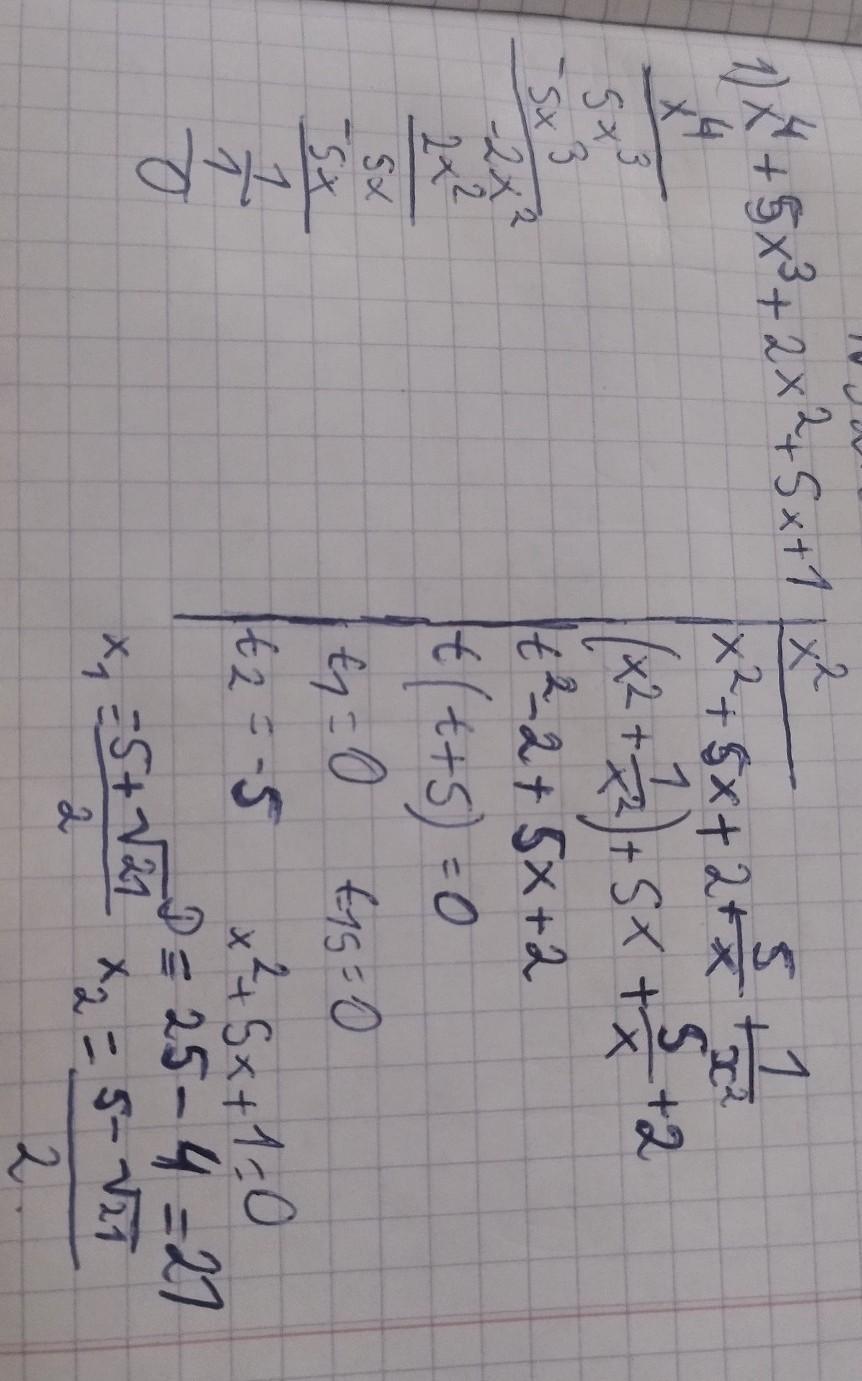 1) x⁴ + 5x³ + 2x² + 5x + 1 | x²
x⁴
5x³
-5x³
-2x²
2x²
5x
-5x
1
1
0
x² + 5x + 2 + 5/x + 1/x²
(x² + 1/x²) + 5x + 5/x + 2
t² - 2 + 5x + 2
t(t+5) = 0
t₁ = 0 t₁₅ = 0
t₂ = -5 x² + 5x + 1 = 0
D = 25 - 4 = 21
x₁ = -5 + √21 / 2 x₂ = 5 - √21 / 2